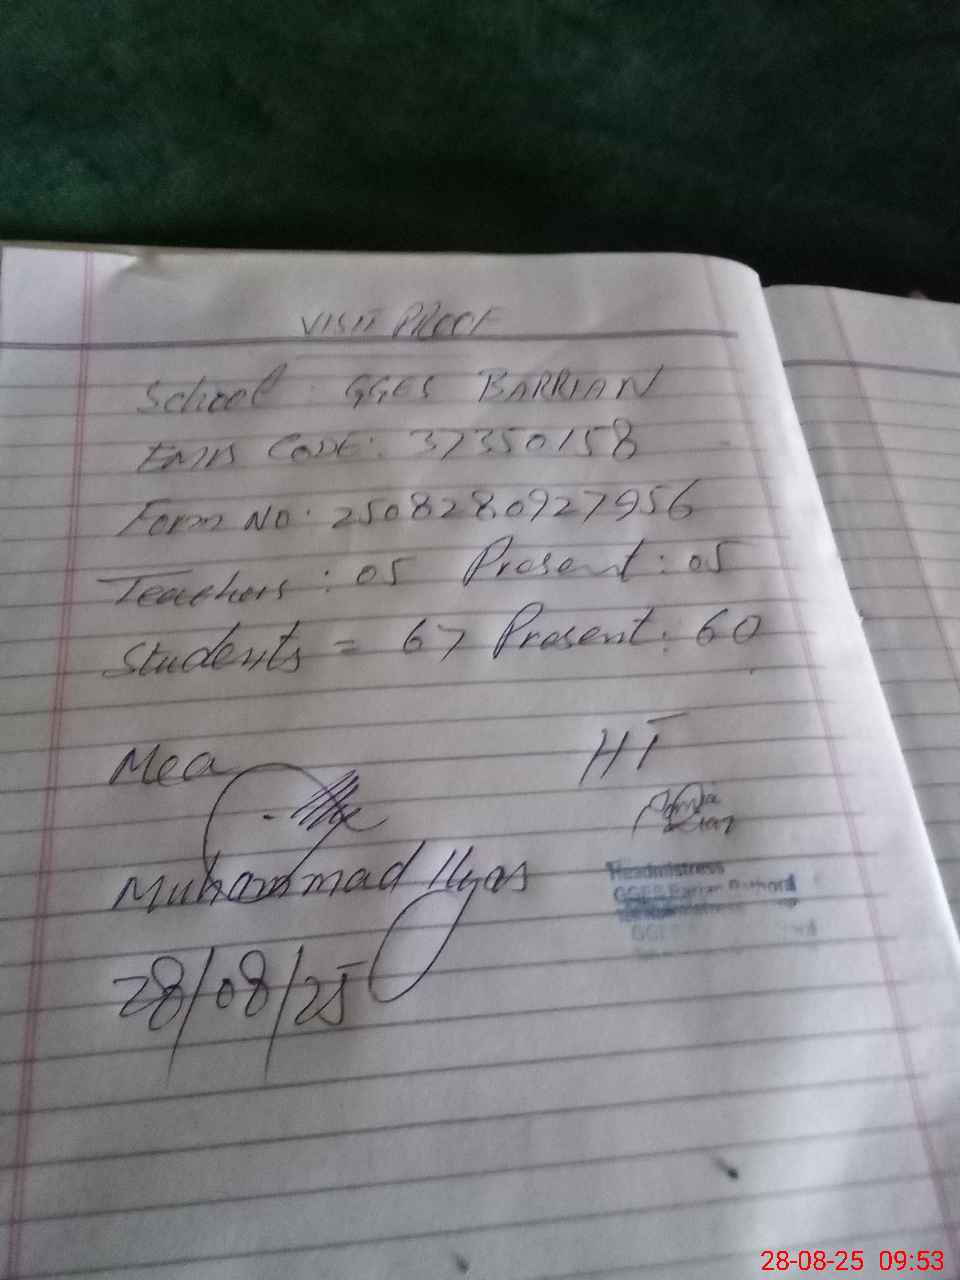 VISIT PROOF
School: GGES BARRIAN
EMIS CODE: 37350158
Form NO: 2508280927956
Teachers: 05 Present: 05
Students = 67 Present: 60
Mea
HT
Muhammad Ilyas
Headmistress
GGES Barrian
28/08/25
28-08-25 09:53